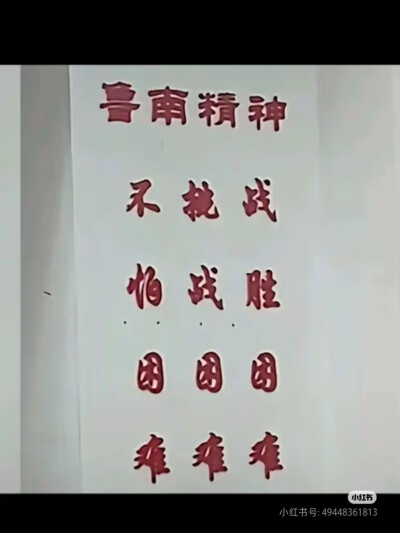 鲁南精神
不怕困难
挑战困难
战胜困难
小红书
小红书号: 49448361813